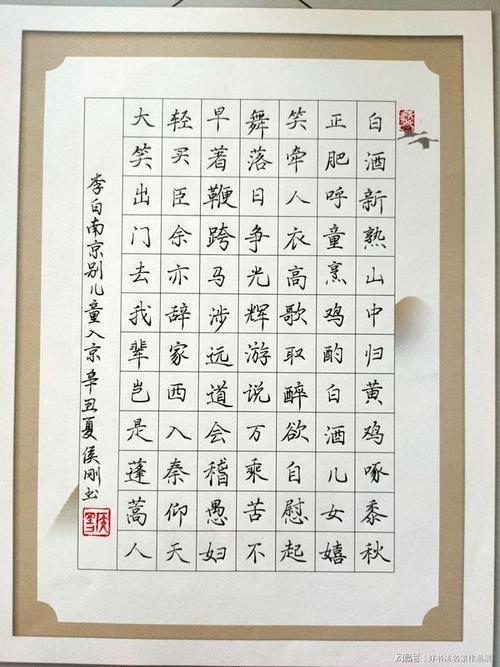 白酒新熟山中归黄鸡啄黍秋
正肥呼童烹鸡酌白酒儿女嬉
笑牵人衣高歌取醉欲自慰起
舞落日争光辉游说万乘苦不
早著鞭跨马涉远道会稽愚妇
轻买臣余亦辞家西入秦仰天
大笑出门去我辈岂是蓬蒿人
李白南京别儿童入京 辛丑夏侯刚书
网易号 | 好书法名家作品展